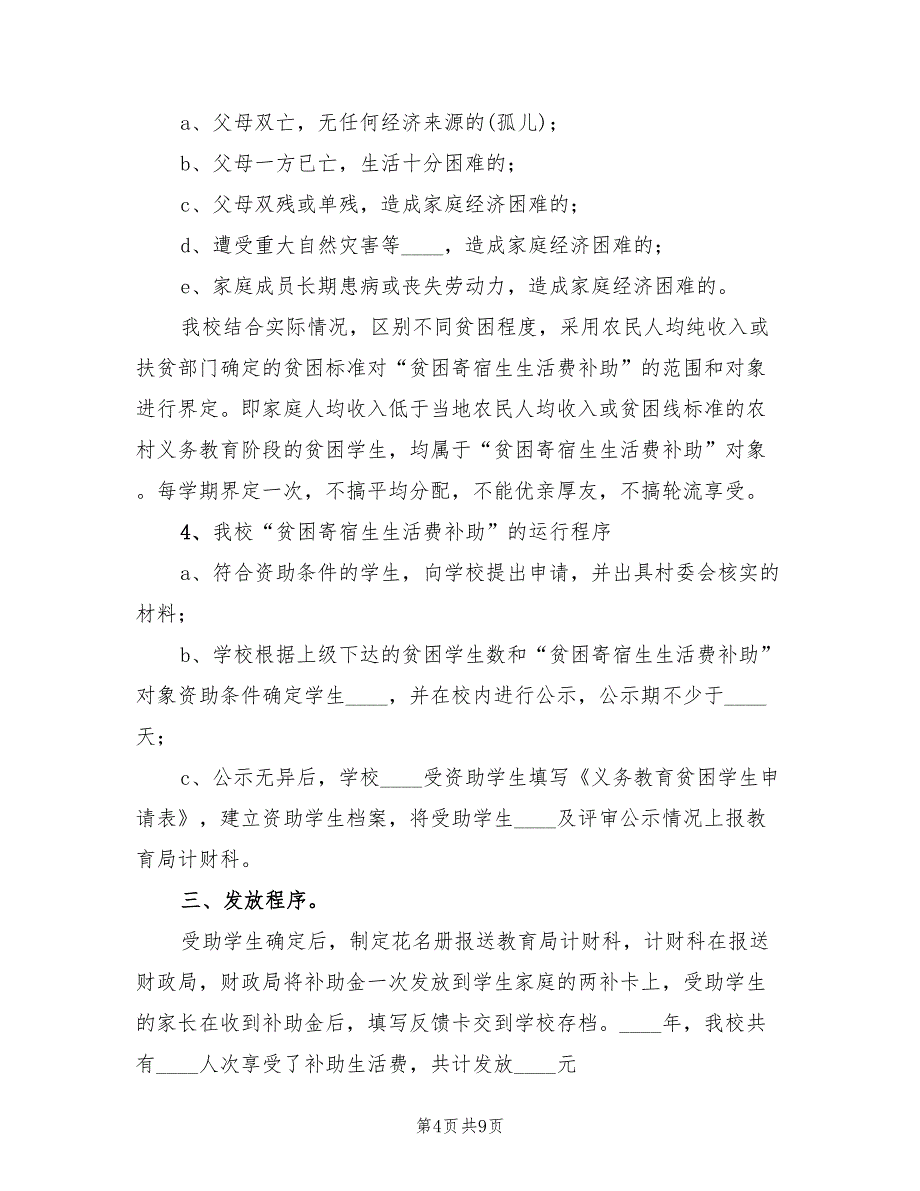 a、父母双亡，无任何经济来源的(孤儿)；
b、父母一方已亡，生活十分困难的；
c、父母双残或单残，造成家庭经济困难的；
d、遭受重大自然灾害等____，造成家庭经济困难的；
e、家庭成员长期患病或丧失劳动力，造成家庭经济困难的。
我校结合实际情况，区别不同贫困程度，采用农民人均纯收入或
扶贫部门确定的贫困标准对“贫困寄宿生生活费补助”的范围和对象
进行界定。即家庭人均收入低于当地农民人均收入或贫困线标准的农
村义务教育阶段的贫困学生，均属于“贫困寄宿生生活费补助”对象
。每学期界定一次，不搞平均分配，不能优亲厚友，不搞轮流享受。
4、我校“贫困寄宿生生活费补助”的运行程序
a、符合资助条件的学生，向学校提出申请，并出具村委会核实的
材料；
b、学校根据上级下达的贫困学生数和“贫困寄宿生生活费补助”
对象资助条件确定学生____，并在校内进行公示，公示期不少于____
天；
c、公示无异后，学校____受资助学生填写《义务教育贫困学生申
请表》，建立资助学生档案，将受助学生____及评审公示情况上报教
育局计财科。
三、发放程序。
受助学生确定后，制定花名册报送教育局计财科，计财科在报送
财政局，财政局将补助金一次发放到学生家庭的两补卡上，受助学生
的家长在收到补助金后，填写反馈卡交到学校存档。____年，我校共
有____人次享受了补助生活费，共计发放____元
第4页共9页